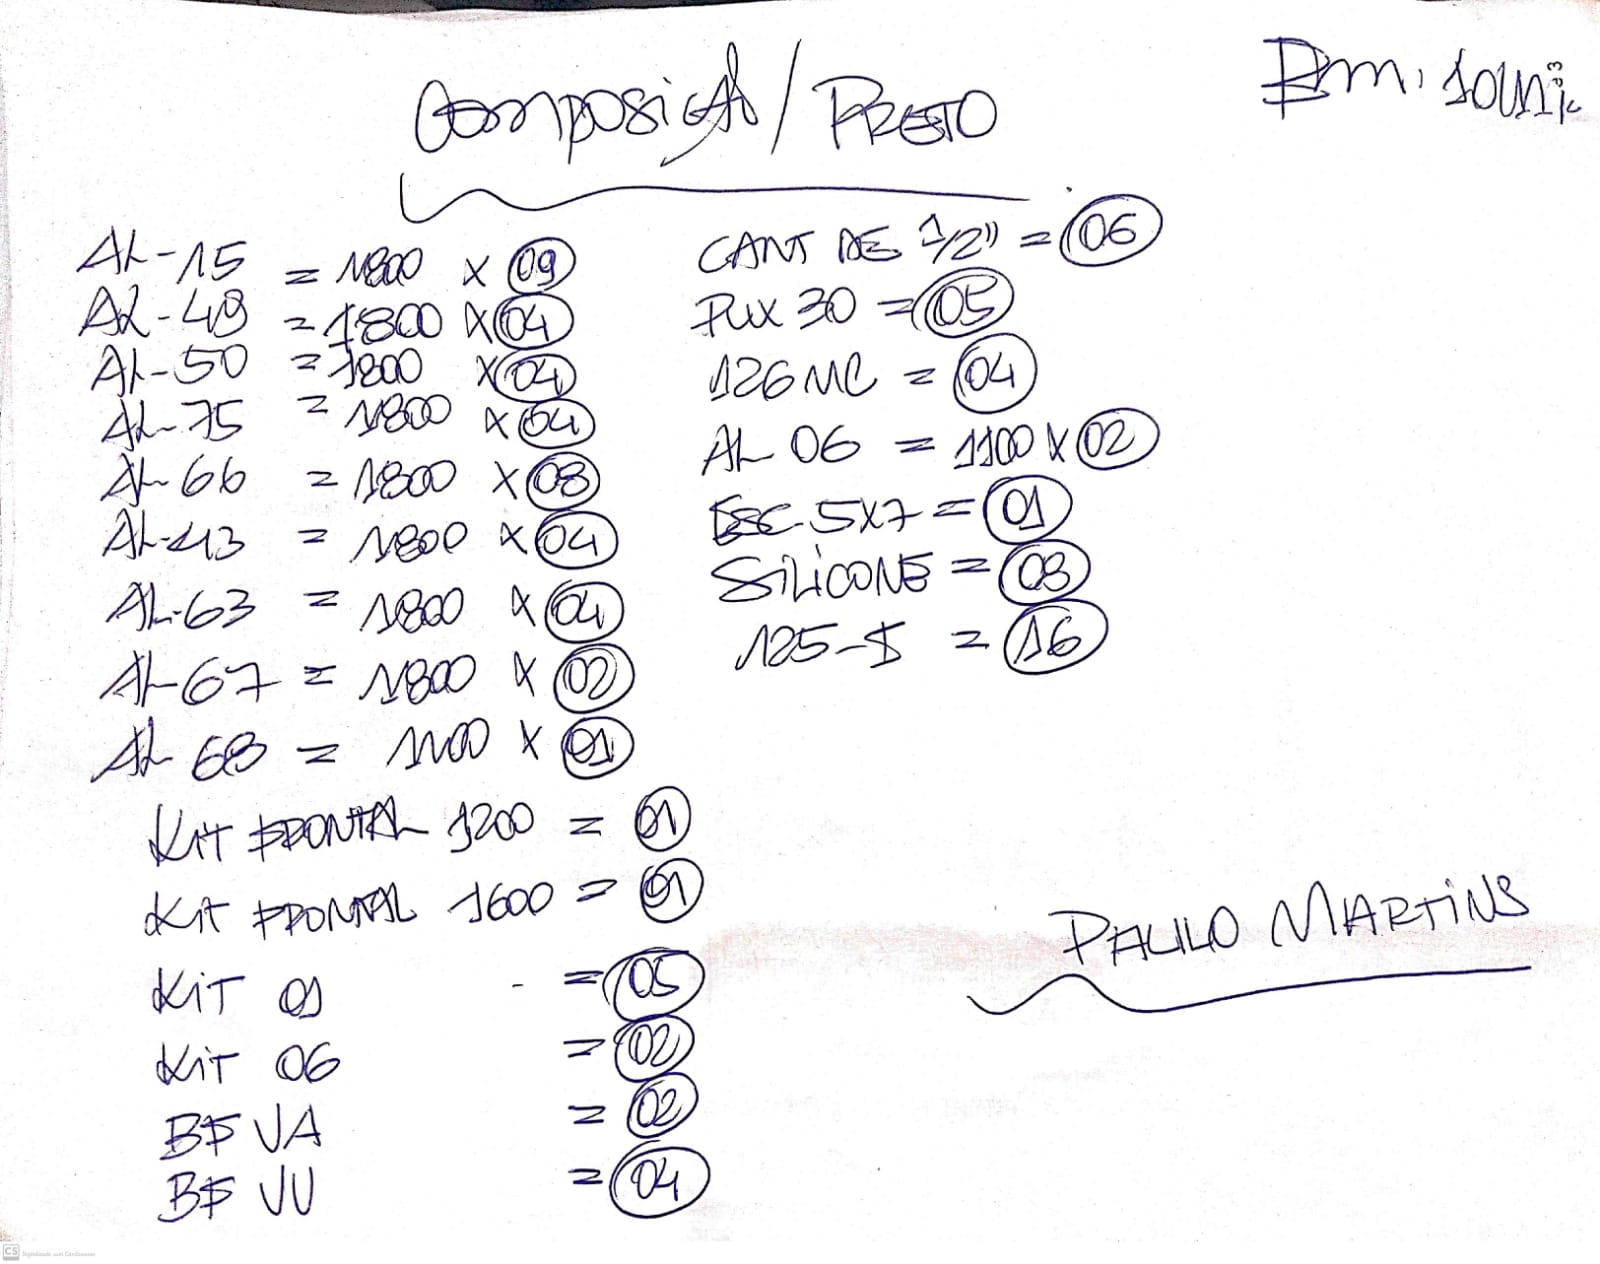 COMPOSIÇÃO / PRETO
AL-15 = 1800 x 09
AL-49 = 1800 x 04
AL-50 = 1800 x 04
AL-75 = 1800 x 04
AL-66 = 1800 x 08
AL-43 = 1800 x 04
AL-63 = 1800 x 04
AL-67 = 1800 x 02
AL 68 = 1100 x 01
KIT FRONTAL 1200 = 01
KIT FRONTAL 1600 = 01
KIT 01 = 05
KIT 06 = 02
B$ VA = 02
B$ VU = 04
CANT DE 1/2" = 06
PUX 30 = 05
126 MC = 04
AL 06 = 1100 X 02
ESC. 5X7 = 01
SILICONE = 08
125-$ = 16
PAULO MARTINS
CS Digitalizado com CamScanner